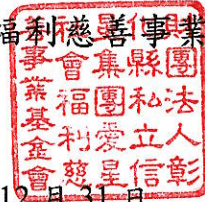 福利慈善事業
財團法人彰
化縣私立信
集團愛星
社會福利慈
善事業基金會
12月31日